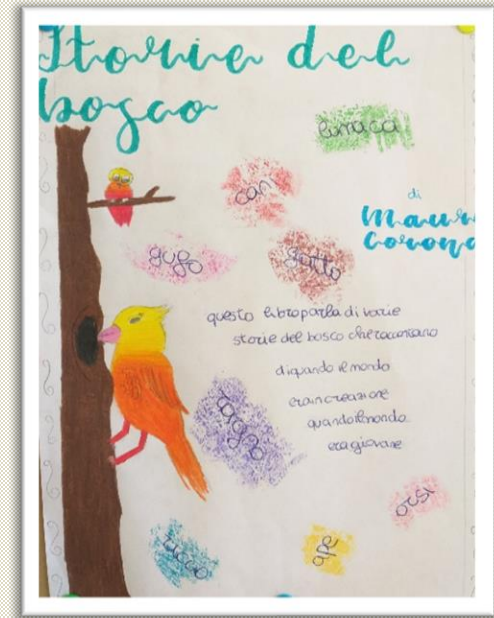 Storie del
bosco
lumaca
cani
di
Mauro
Corona
gufo
gatto
questo libro parla di varie
storie del bosco che raccontano
di quando il mondo
era in creazione
quando il mondo
era giovane
orsi
ape